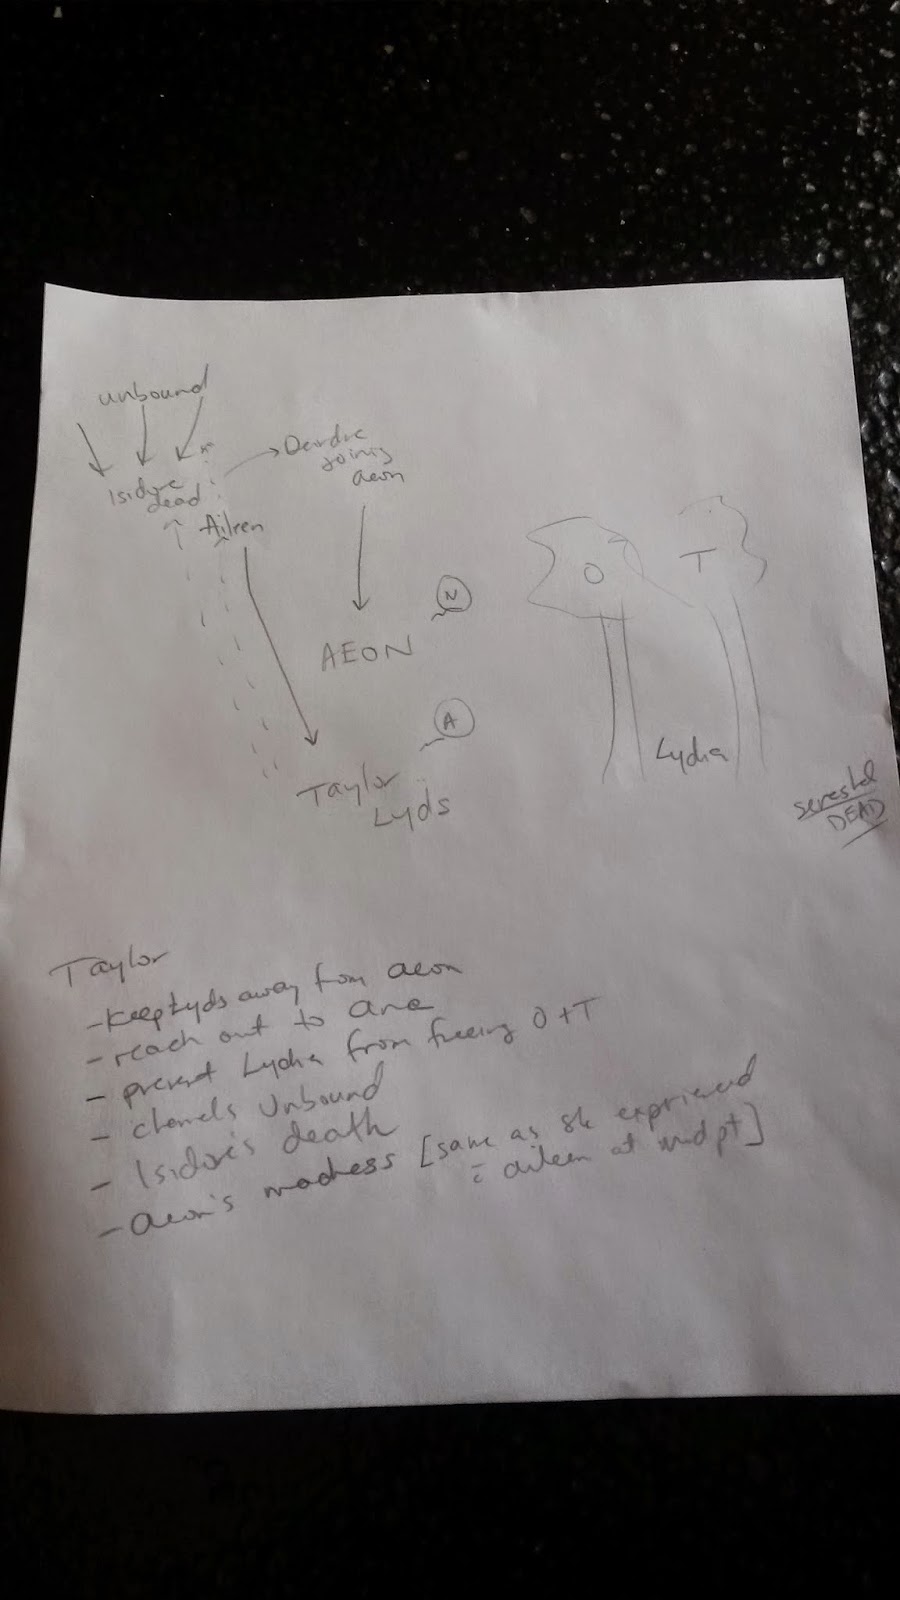 unbound
Isidore
dead
Aileen
Deirdre
joining
aeon
N
AEON
A
Taylor
Lyds
O
T
Lydia
DEAD
Taylor
- keep Lyds away from aeon
- reach out to
- prevent Lydia from freeing O + T
- channels Unbound
- Isidore's death
- aeon's madness [same as she experienced
aileen at mid pt]